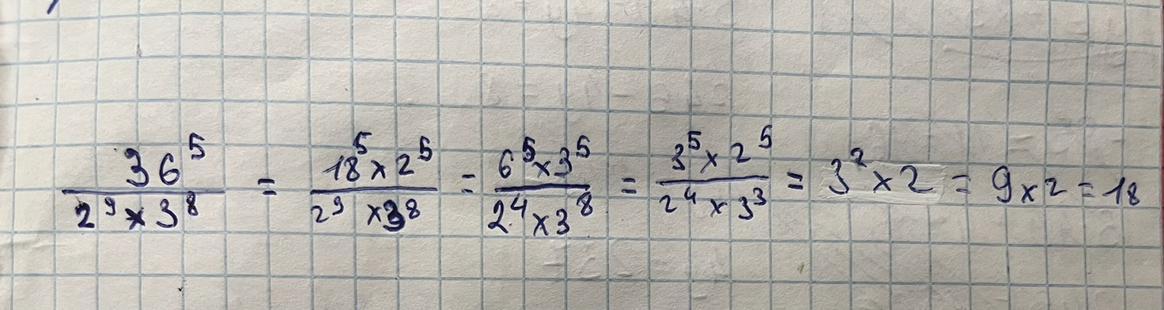 36⁵/(2⁹ × 3⁸) = (18⁵ × 2⁵)/(2⁹ × 3⁸) = (6⁵ × 3⁵)/(2⁴ × 3⁸) = (3⁵ × 2⁵)/(2⁴ × 3³) = 3² × 2 = 9 × 2 = 18